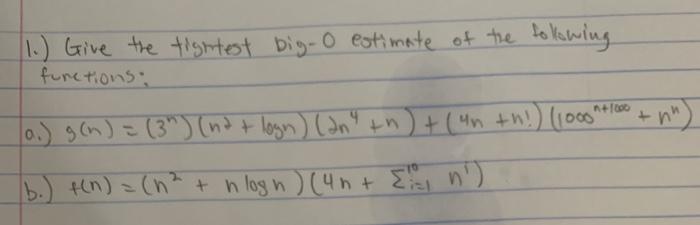 1.) Give the tightest big-O estimate of the following
functions:
a.) g(n) = (3ⁿ)(n² + logn)(2n⁴ + n) + (4n + n!)(1000ⁿ⁺¹⁰⁰⁰ + nⁿ)
b.) f(n) = (n² + n logn)(4n + Σ¹⁰ᵢ₌₁ nⁱ)